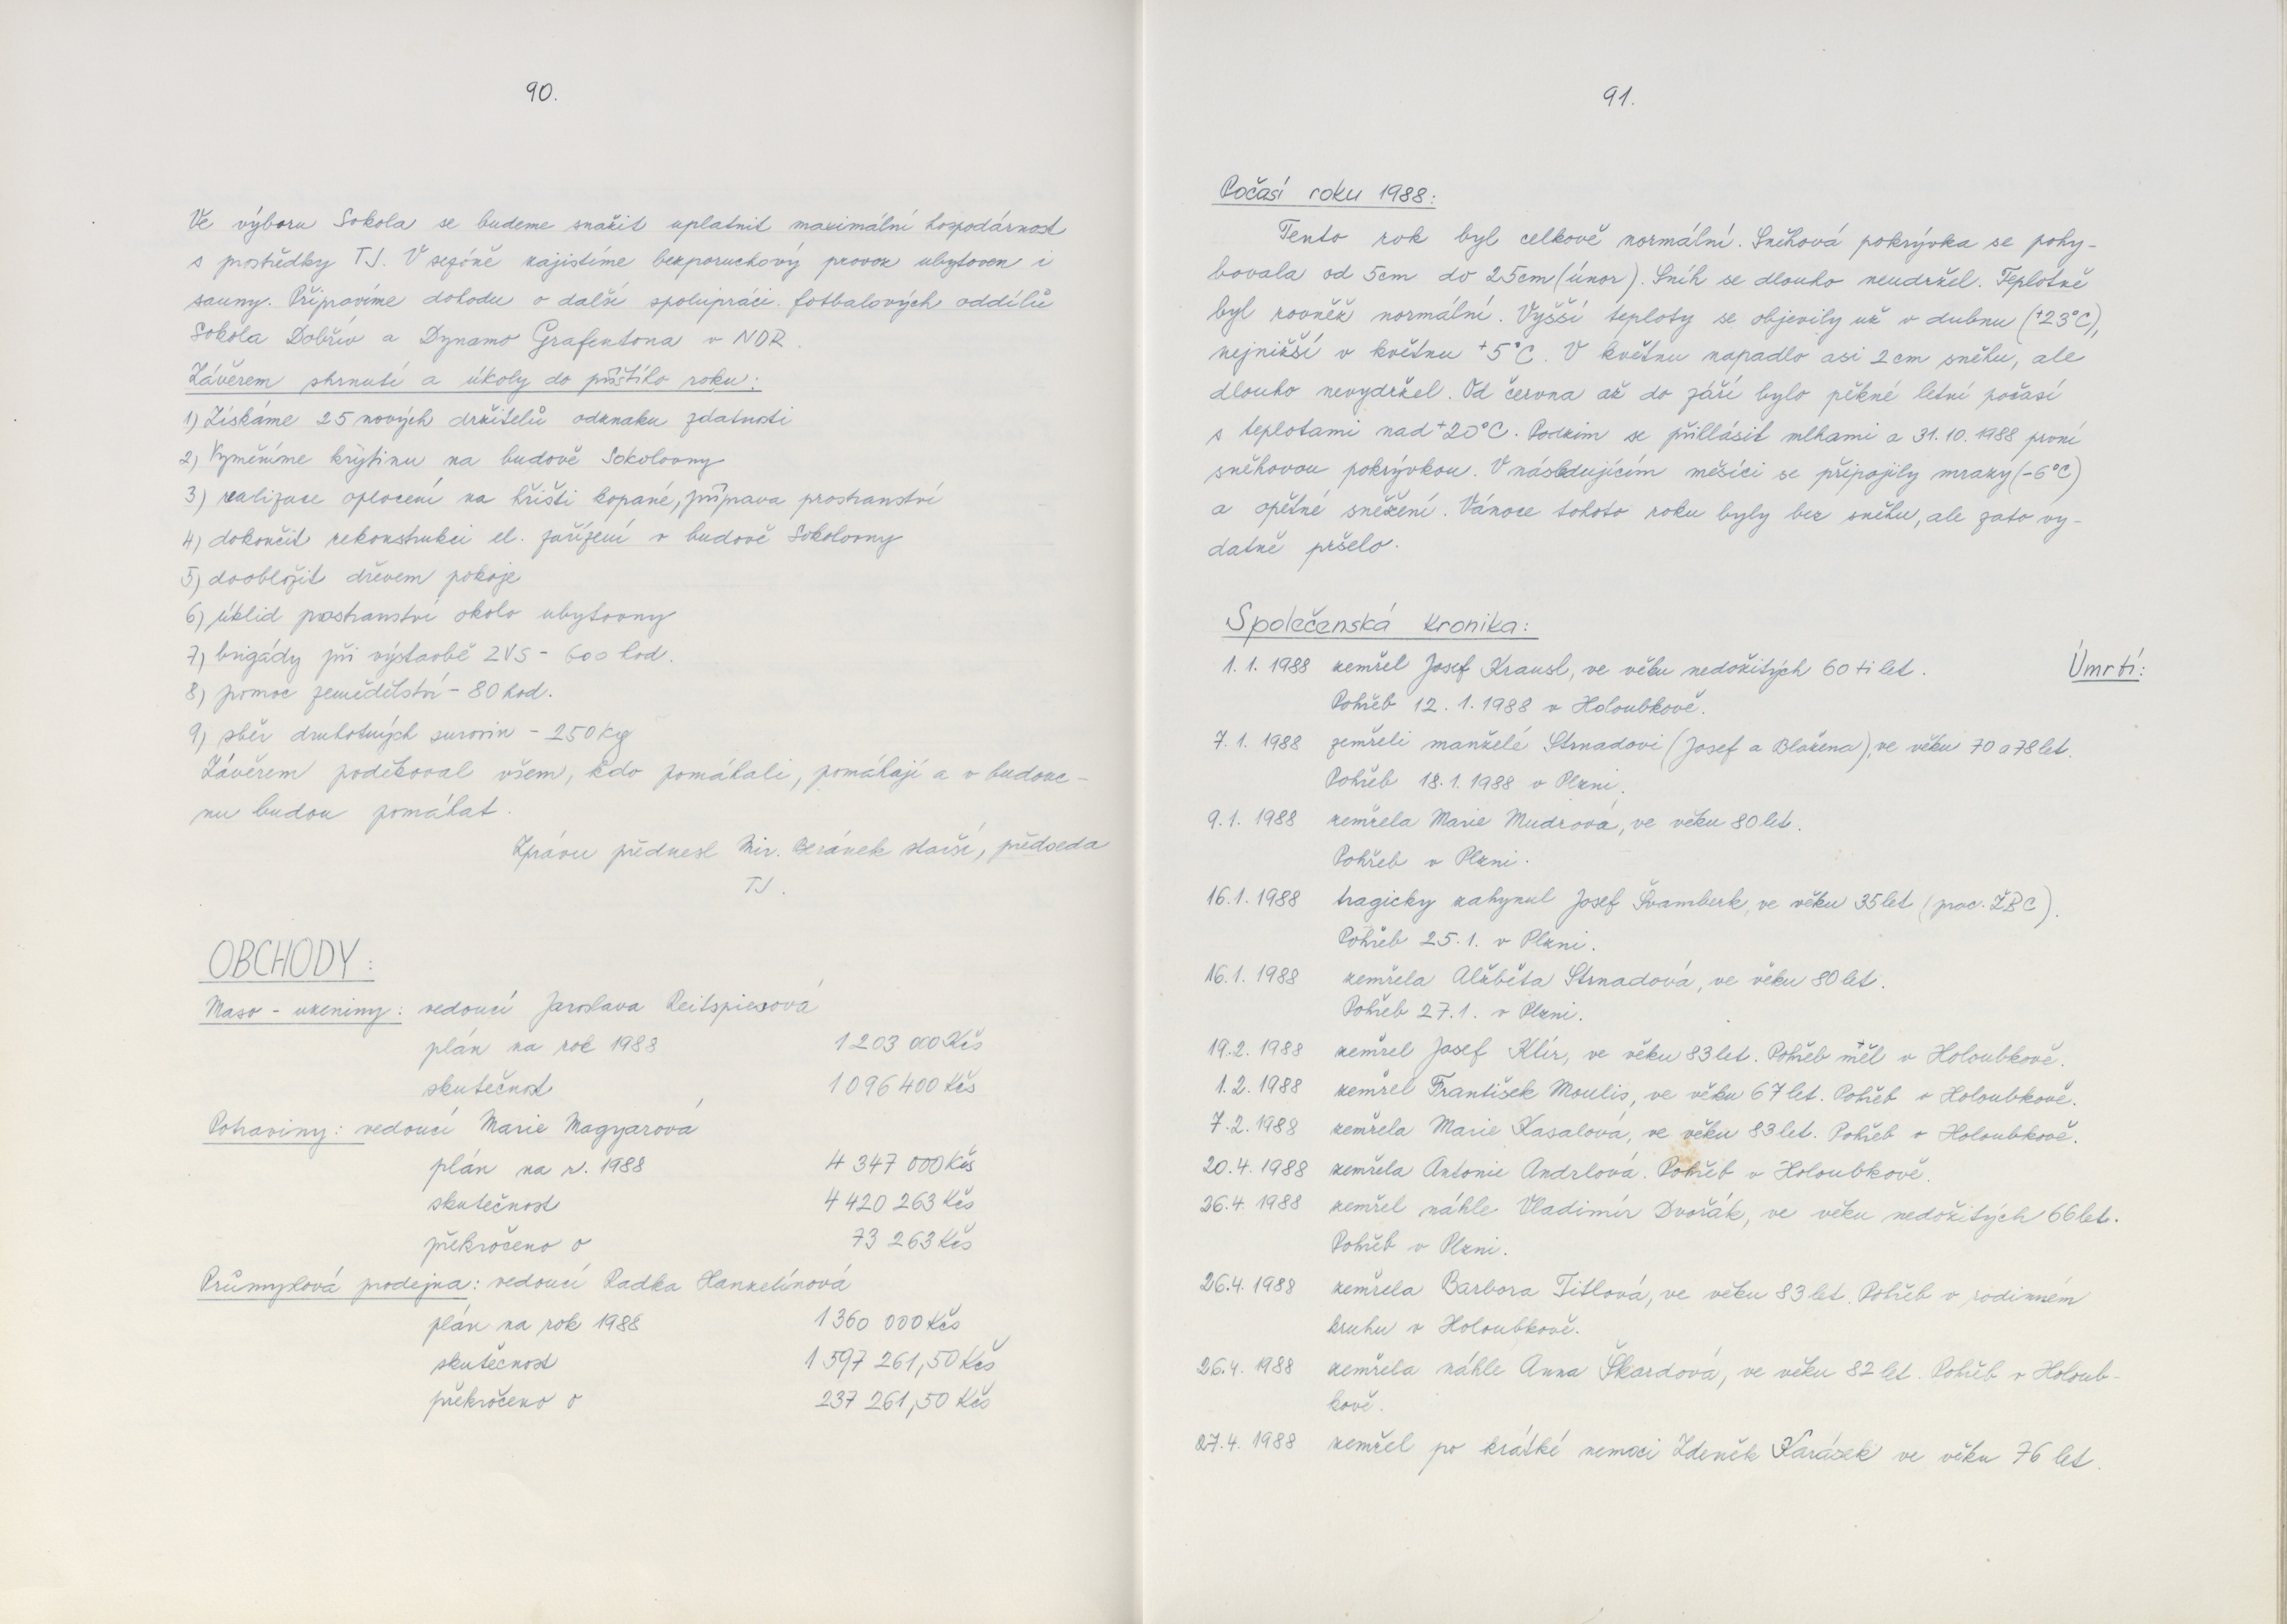 90.
Ve výboru Sokola se budeme snažit uplatnit maximální hospodárnost
s prostředky TJ. V sezóně zajistíme bezporuchový provoz ubytoven i
sauny. Připravíme dohodu o další spolupráci fotbalových oddílů
Sokola Dobřív a Dynamo Grafentona v NDR.
Závěrem shrnutí a úkoly do příštího roku:
1) Získáme 25 nových držitelů odznaku zdatnosti
2) Vyměníme krytinu na budově Sokolovny
3) realizace oplocení na hřišti kopané, příprava prostranství
4) dokončit rekonstrukci el. zařízení v budově Sokolovny
5) doobložit dřevem pokoje
6) úklid prostranství okolo ubytovny
7) brigády při výstavbě ZVS - 600 hod.
8) pomoc zemědělství - 80 hod.
9) sběr druhotných surovin - 250 kg
Závěrem poděkoval všem, kdo pomáhali, pomáhají a v budouc-
nu budou pomáhat.
Zprávu přednesl Mir. Beránek starší, předseda
TJ.
OBCHODY:
Maso - uzeniny: vedoucí Jaroslava Reitspiesová
plán na rok 1988 1 203 000 Kčs
skutečnost 1 096 400 Kčs
Potraviny: vedoucí Marie Magyarová
plán na r. 1988 4 347 000 Kčs
skutečnost 4 420 263 Kčs
překročeno o 73 263 Kčs
Průmyslová prodejna: vedoucí Radka Hanzelínová
plán na rok 1988 1 360 000 Kčs
skutečnost 1 597 261,50 Kčs
překročeno o 237 261,50 Kčs
91.
Počasí roku 1988:
Tento rok byl celkově normální. Sněhová pokrývka se pohy-
bovala od 5cm do 25cm (únor). Sníh se dlouho neudržel. Teplotně
byl rovněž normální. Vyšší teploty se objevily už v dubnu (+23°C),
nejnižší v květnu +5°C. V květnu napadlo asi 2cm sněhu, ale
dlouho nevydržel. Od června až do září bylo pěkné letní počasí
s teplotami nad +20°C. Podzim se přihlásil mlhami a 31.10.1988 první
sněhovou pokrývkou. V následujícím měsíci se připojily mrazy (-6°C)
a opětné sněžení. Vánoce tohoto roku byly bez sněhu, ale zato vy-
datně pršelo.
Společenská kronika:
Úmrtí:
1.1. 1988 zemřel Josef Krausl, ve věku nedožitých 60 ti let.
Pohřeb 12.1.1988 v Holoubkově.
7.1. 1988 zemřeli manželé Strnadovi (Josef a Blažena), ve věku 70 a 78 let.
Pohřeb 18.1.1988 v Plzni.
9.1. 1988 zemřela Marie Mudrová, ve věku 80 let.
Pohřeb v Plzni.
16.1. 1988 tragicky zahynul Josef Švamberk, ve věku 35 let (prac. ŽBC).
Pohřeb 25.1. v Plzni.
16.1. 1988 zemřela Alžběta Strnadová, ve věku 80 let.
Pohřeb 27.1. v Plzni.
19.2. 1988 zemřel Josef Klír, ve věku 83 let. Pohřeb měl v Holoubkově.
1.2. 1988 zemřel František Moulis, ve věku 67 let. Pohřeb v Holoubkově.
7.2. 1988 zemřela Marie Kasalová, ve věku 83 let. Pohřeb v Holoubkově.
20.4. 1988 zemřela Antonie Andrlová. Pohřeb v Holoubkově.
26.4. 1988 zemřel náhle Vladimír Dvořák, ve věku nedožitých 66 let.
Pohřeb v Plzni.
26.4. 1988 zemřela Barbora Titlová, ve věku 83 let. Pohřeb v rodinném
kruhu v Holoubkově.
26.4. 1988 zemřela náhle Anna Škardová, ve věku 82 let. Pohřeb v Holoub-
kově.
27.4. 1988 zemřel po krátké nemoci Zdeněk Karásek ve věku 76 let.